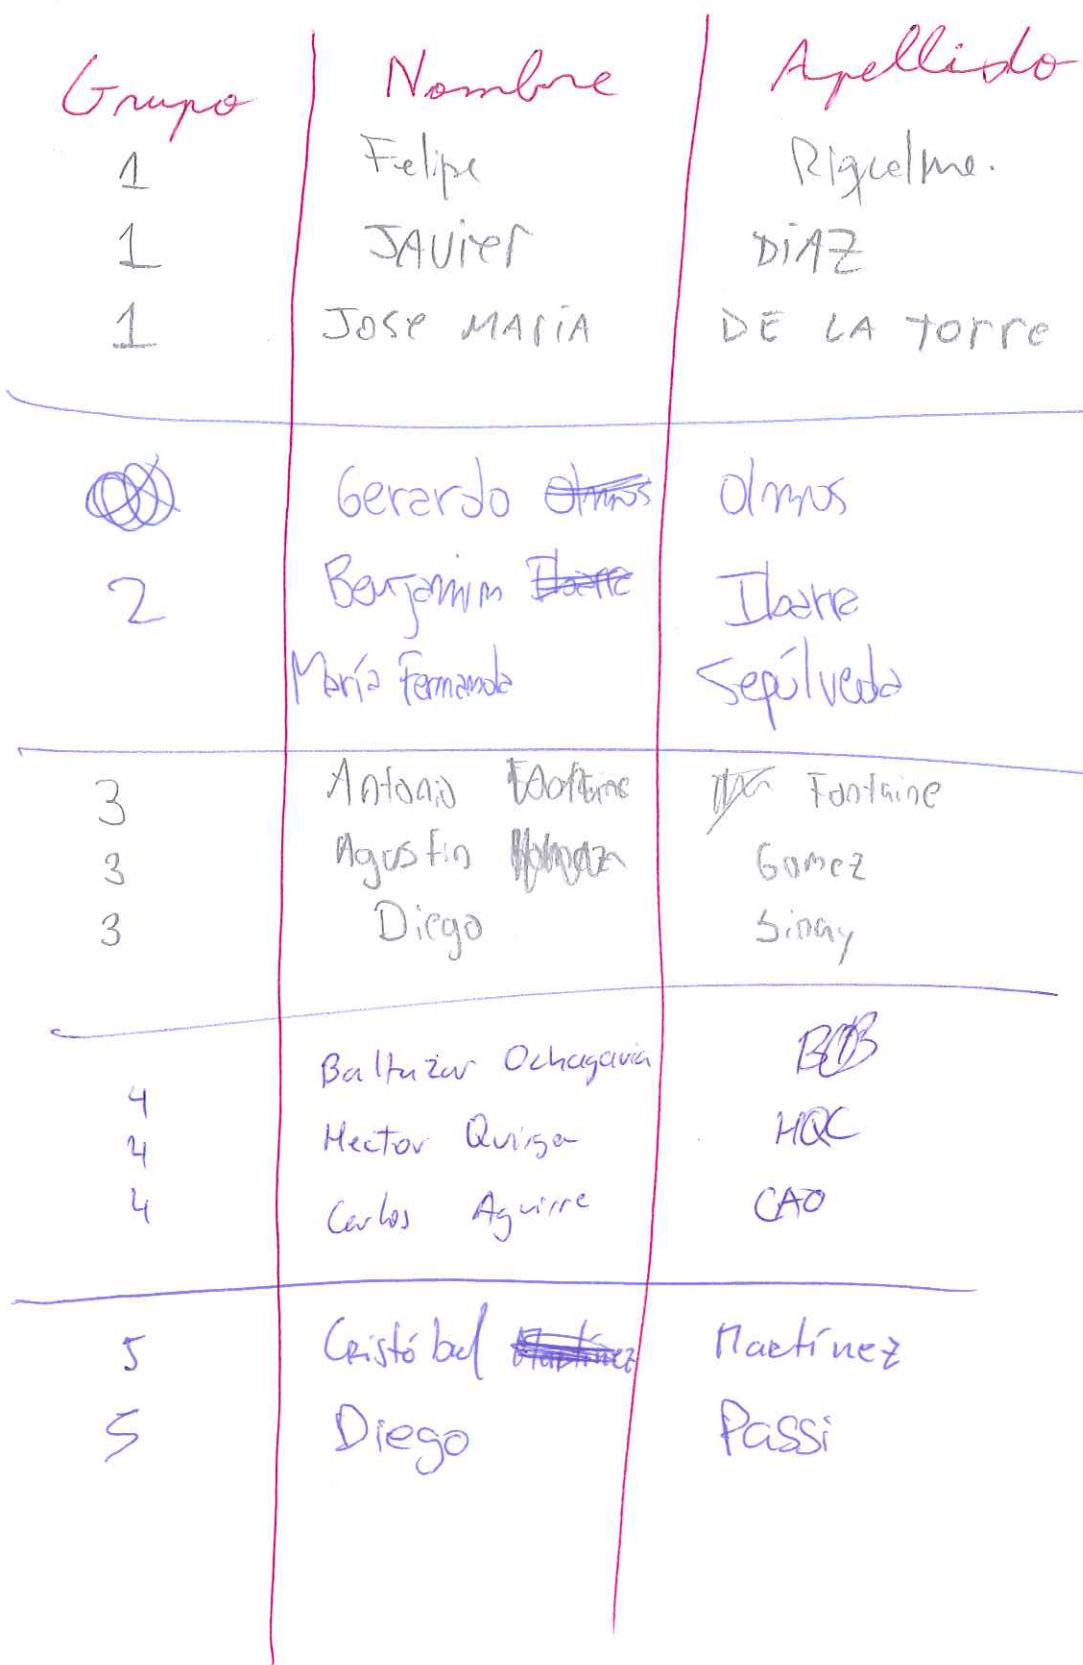 Grupo Nombre Apellido
1 Felipe Riquelme.
1 JAvier DiAZ
1 Jose MAriA DE LA torre
Gerardo Olmos Olmos
2 Benjamin Ibarra Ibarra
María Fernanda Sepúlveda
3 Antonio Fontaine
3 Agustin Gomez
3 Diego Sinay
Baltazar Ochagavia
4
4 Hector Quiroga HQC
4 Carlos Aguirre CAO
5 Cristóbal Martínez Martínez
5 Diego Passi